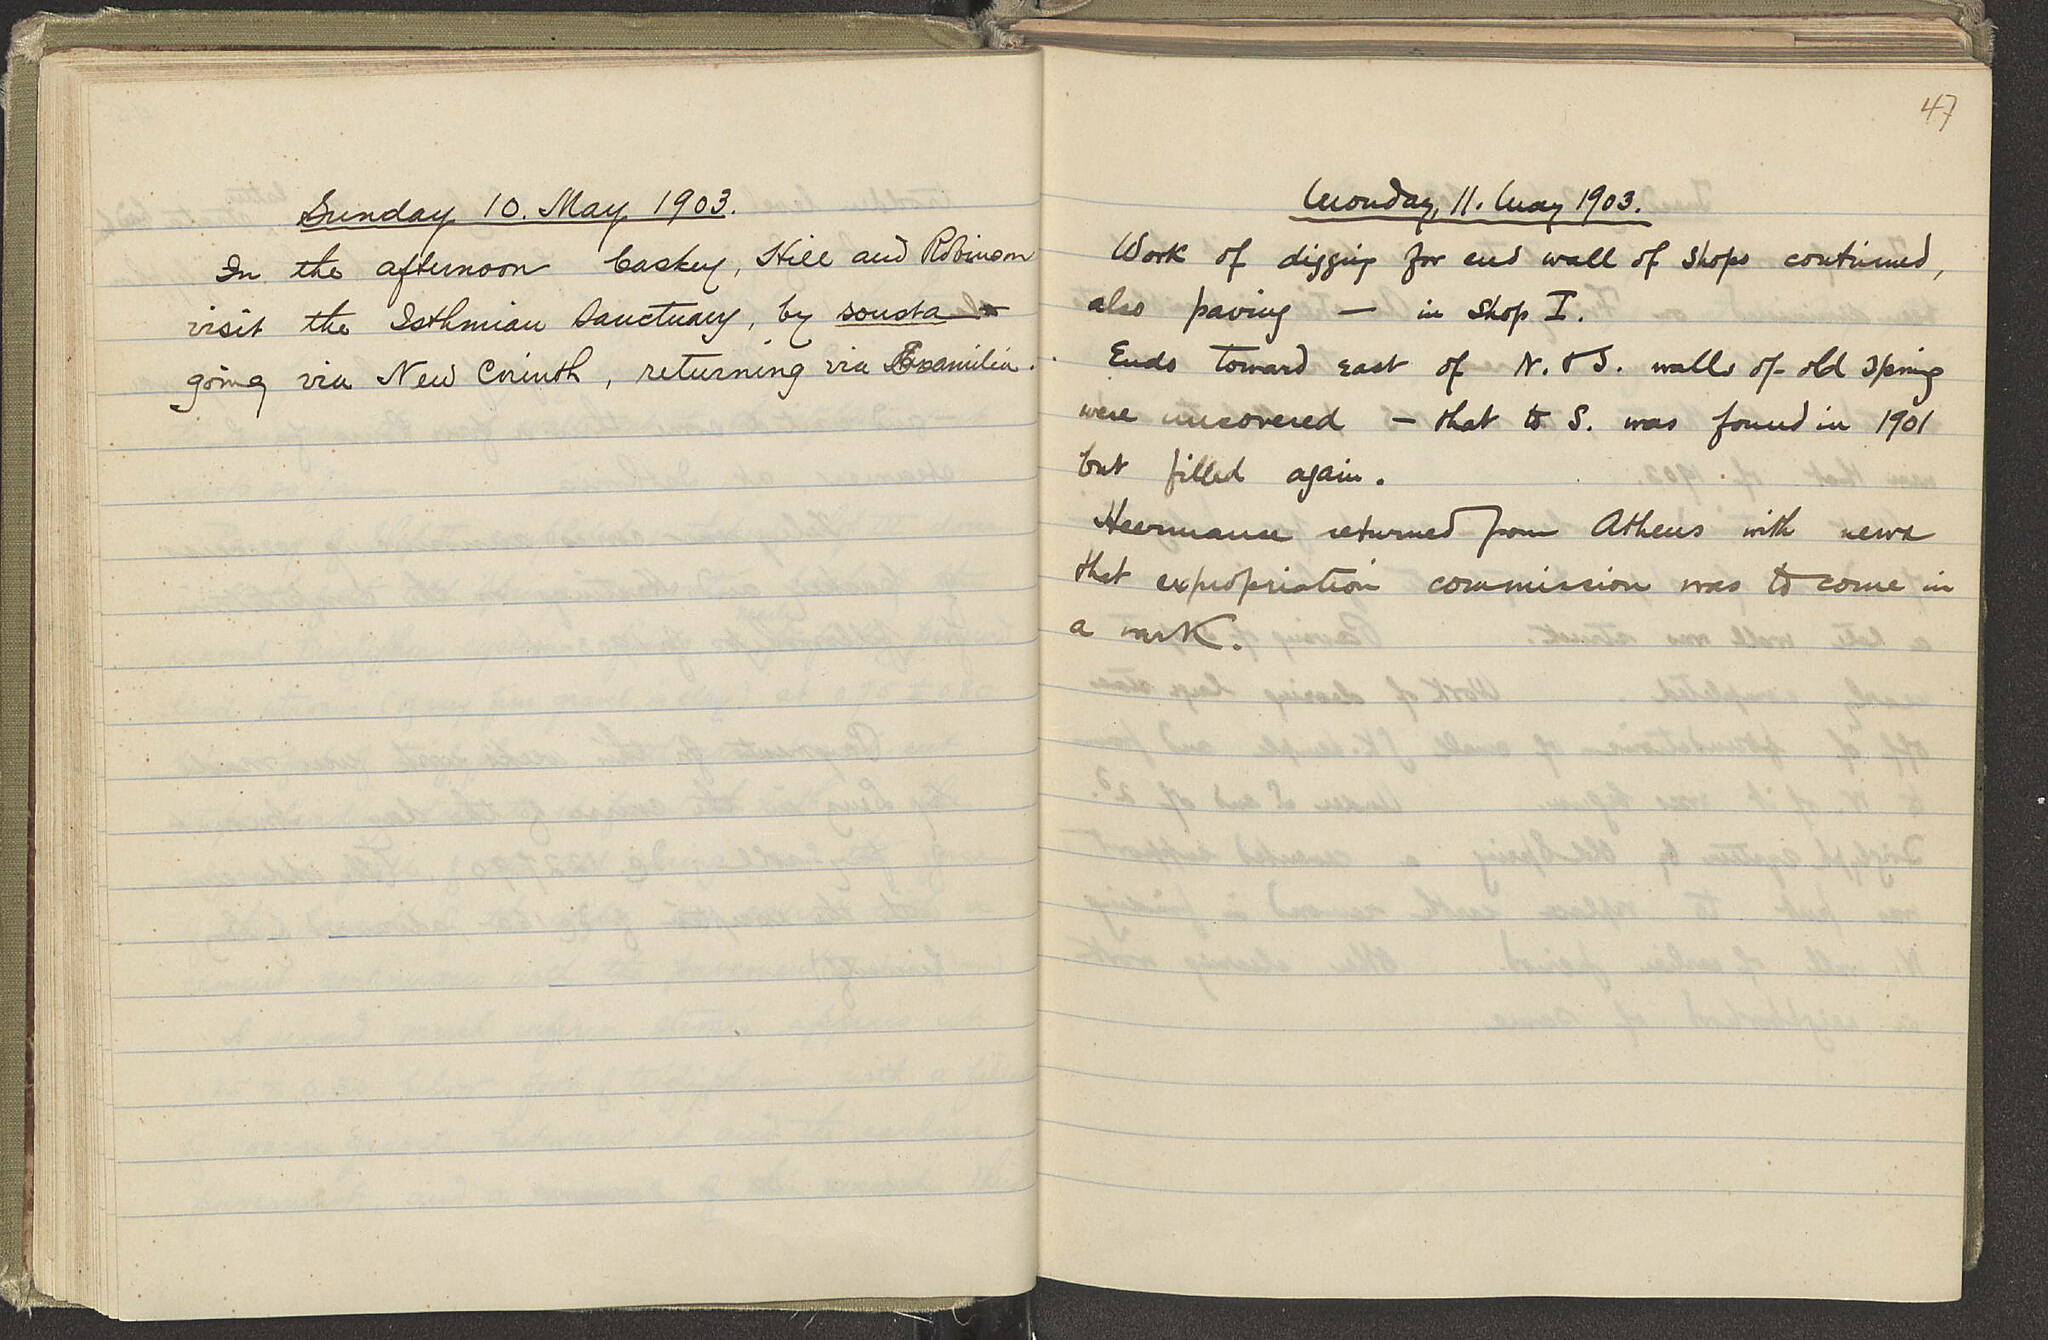 Sunday 10. May 1903.
In the afternoon Caskey, Hill and Robinson
visit the Isthmian Sanctuary, by sousta
going via New Corinth, returning via Examilia.
47
Monday, 11. May 1903.
Work of digging for end wall of shops continued,
also paving — in Shop I.
Ends toward east of N. & S. walls of old Spring
were uncovered — that to S. was found in 1901
but filled again.
Heermance returned from Athens with news
that expropriation commission was to come in
a week.